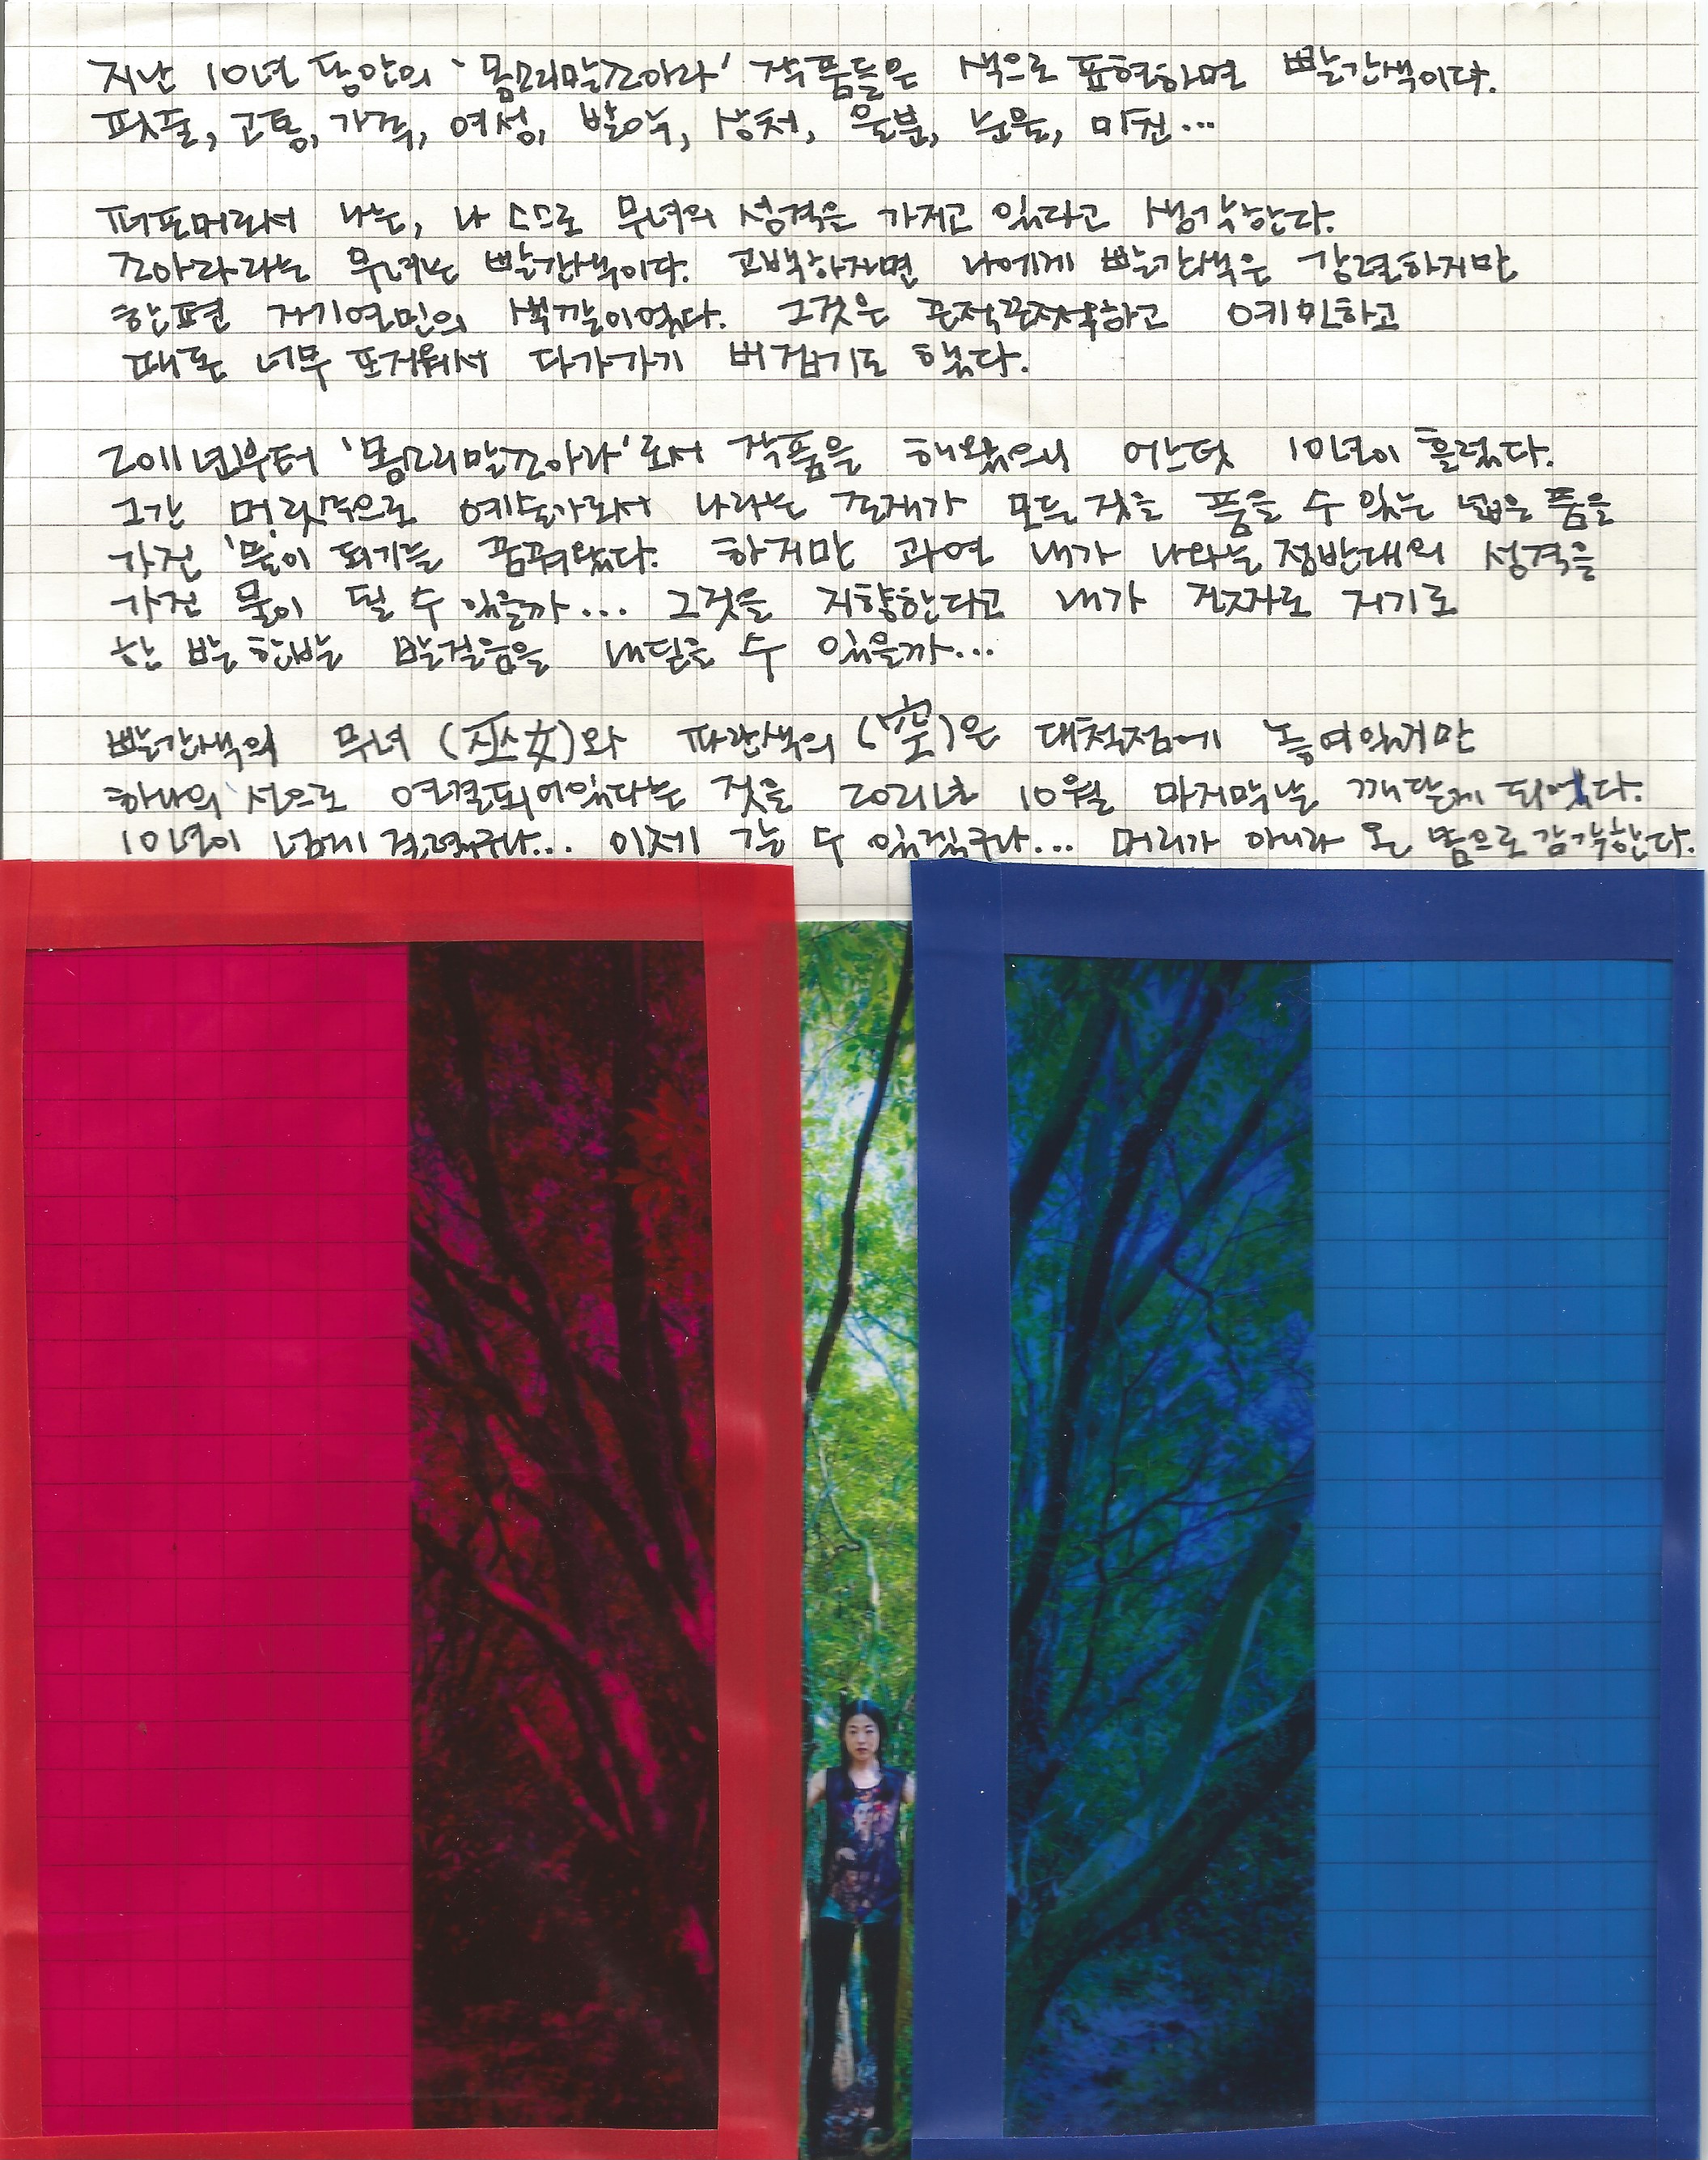 지난 10년 동안의 '몽고리말조아라' 작품들은 색으로 표현하면 빨간색이다.
핏줄, 고통, 가족, 여성, 발악, 상처, 울분, 눈물, 미친...
퍼포머로서 나는, 나 스스로 무녀의 성격을 가지고 있다고 생각한다.
조아라라는 무녀는 빨간색이다. 고백하자면 나에게 빨간색은 강렬하지만
한편 자기연민의 색깔이었다. 그것은 끈적끈적하고 예민하고
때론 너무 뜨거워서 다가가기 버겁기도 했다.
2011년부터 '몽고리말조아라'로서 작품을 해왔으니 어느덧 10년이 흘렀다.
그간 머릿속으로 예술가로서 나라는 존재가 모든 것을 품을 수 있는 넓은 품을
가진 '물'이 되기를 꿈꿔왔다. 하지만 과연 내가 나와는 정반대의 성격을
가진 물이 될 수 있을까... 그것을 지향한다고 내가 진짜로 저기로
한 발 한발 발걸음을 내딛을 수 있을까...
빨간색의 무녀 (巫女)와 파란색의 (空)은 대척점에 놓여있지만
하나의 선으로 연결되어있다는 것을 2021년 10월 마지막날 깨닫게 되었다.
10년이 넘게 걸렸구나... 이제 갈 수 있겠구나... 머리가 아니라 온 몸으로 감각한다.